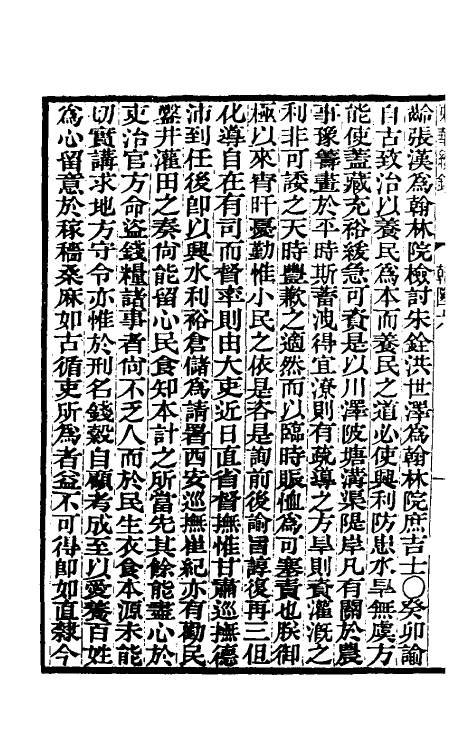 齡張漢為翰林院檢討朱銓洪世澤為翰林院庶吉士○癸卯諭
自古致治以養民為本而養民之道必使興利防患水旱無虞方
能使蓋藏充裕緩急可資是以川澤陂塘溝渠隄岸凡有關於農
事豫籌畫於平時斯蓄洩得宜潦則有疏導之方旱則資灌溉之
利非可諉之天時豐歉之適然而以臨時賑恤為可塞責也朕御
極以來宵旰憂勤惟小民之依是咨是詢前後諭旨諄復再三但
化導自在有司而督率則由大吏近日直省督撫惟甘肅巡撫德
沛到任後卽以興水利裕倉儲為請署西安巡撫崔紀亦有勸民
鑿井灌田之奏尙能留心民食知本計之所當先其餘能盡心於
吏治官方命盜錢糧諸事者尙不乏人而於民生衣食本源未能
切實講求地方守令亦惟於刑名錢穀自顧考成至以愛養百姓
為心留意於稼穡桑麻如古循吏所為者益不可得卽如直隸今